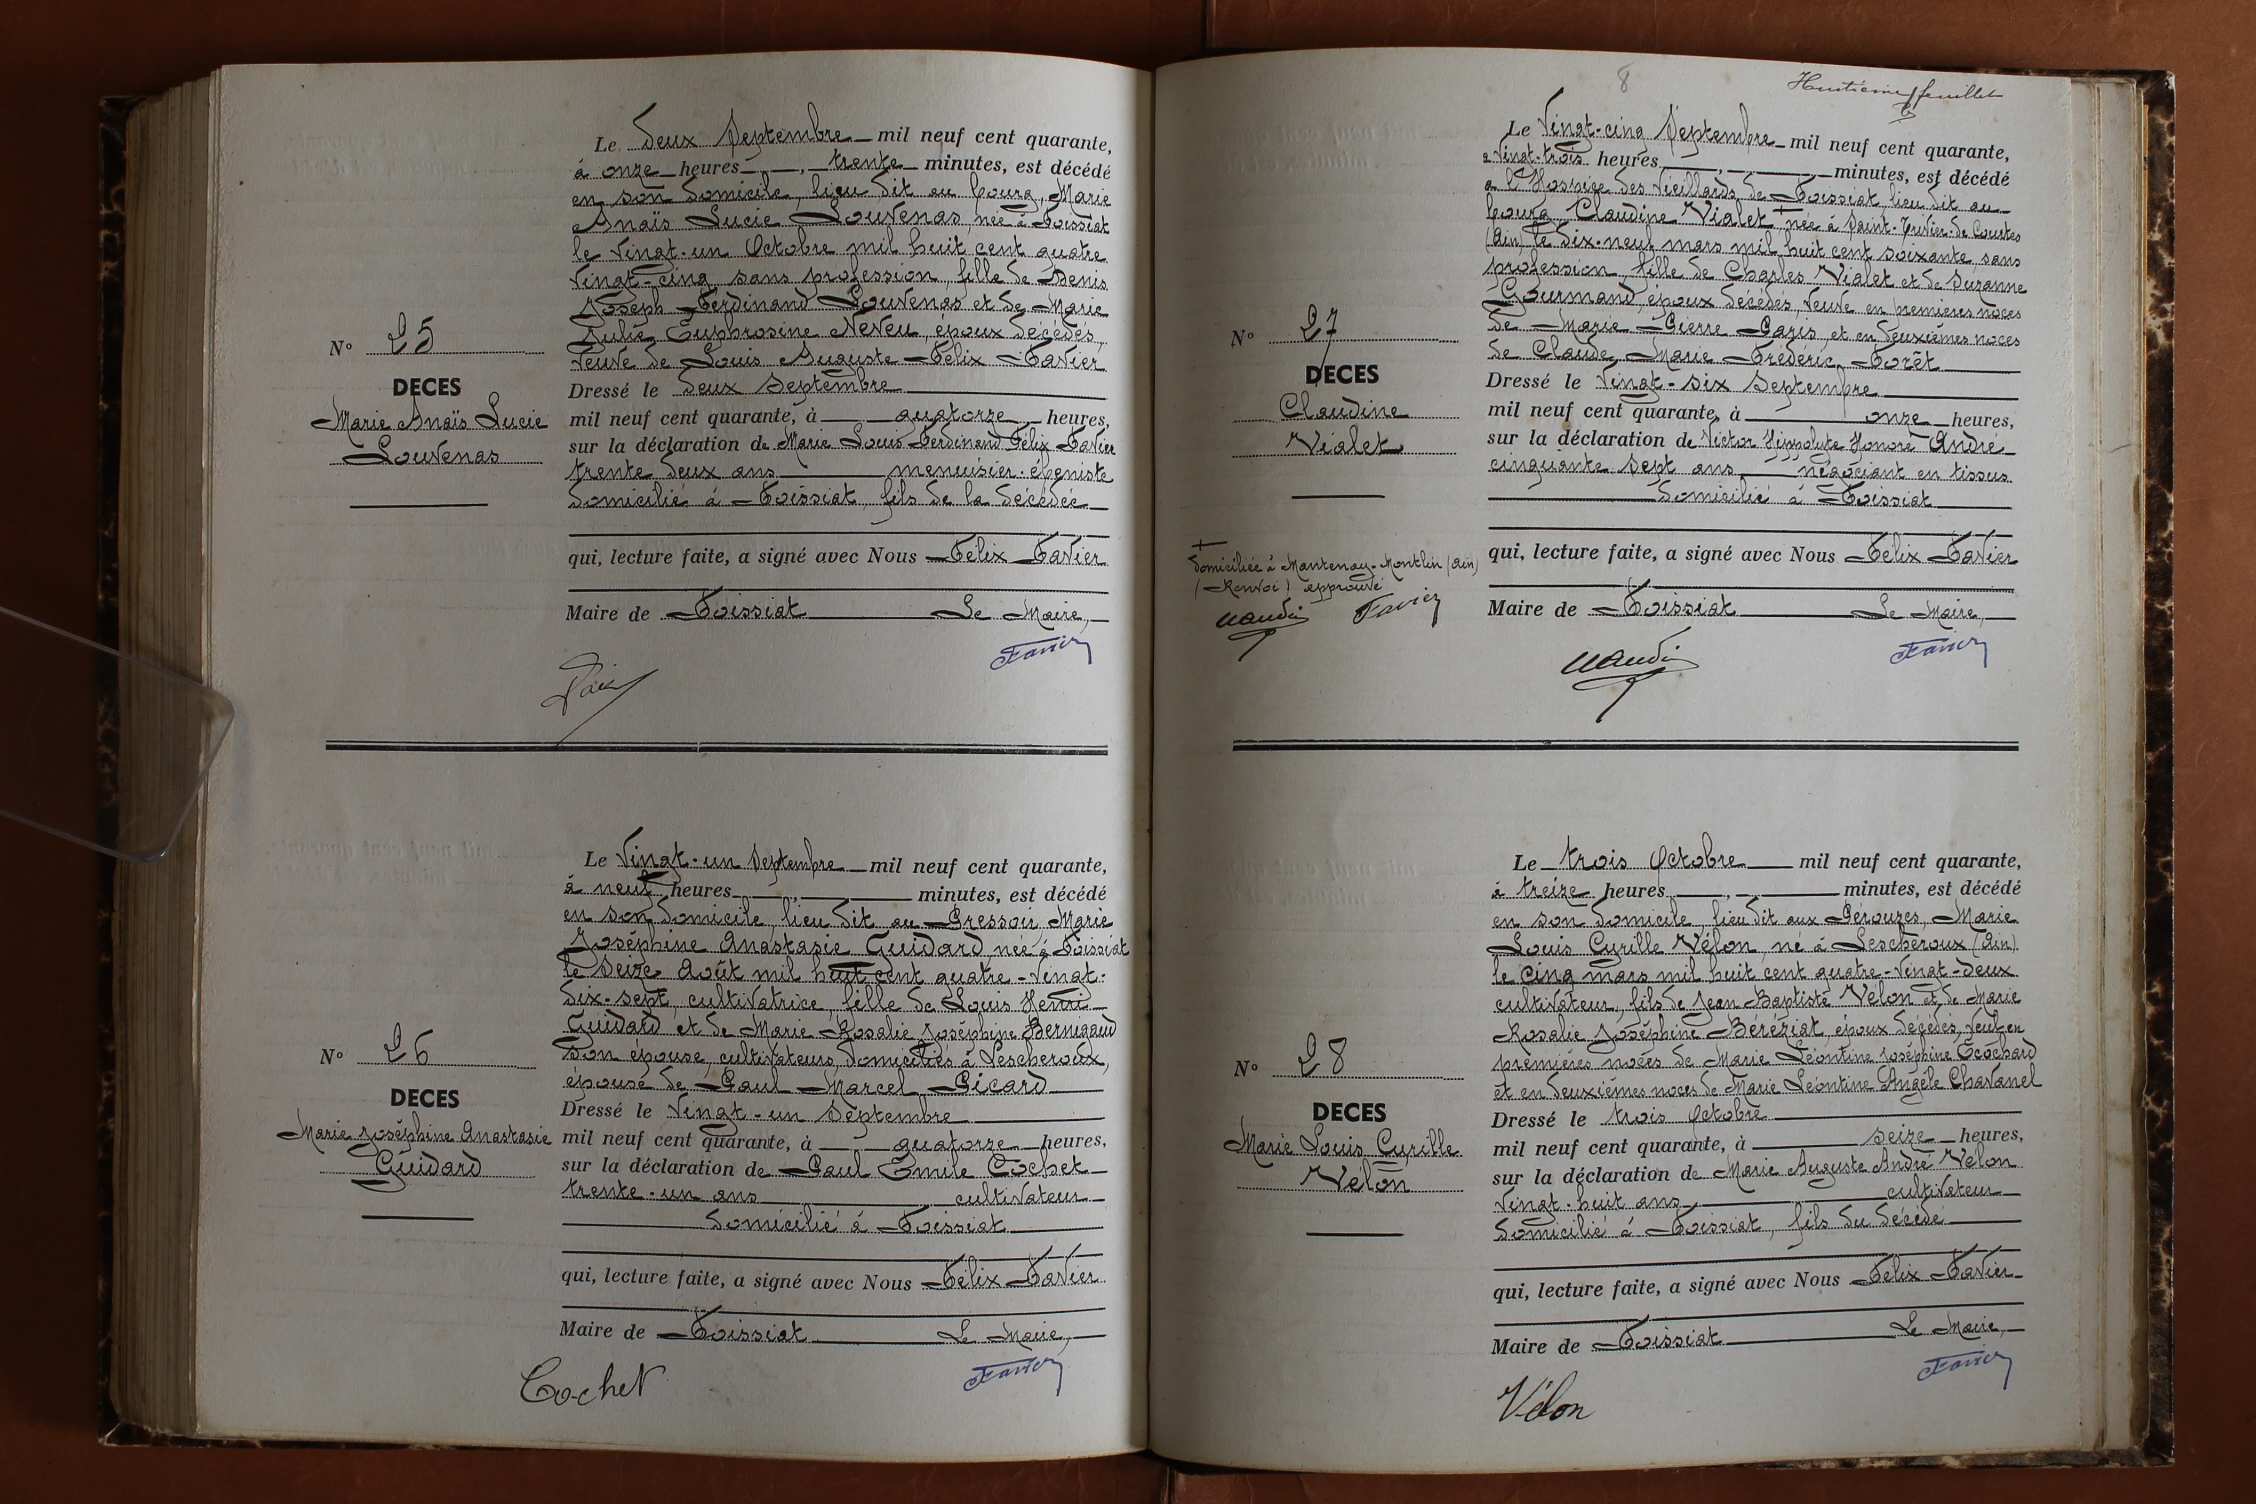 Le deux Septembre mil neuf cent quarante,
à onze heures, trente minutes, est décédé
en son domicile, lieu dit au bourg, Marie
Anaïs Lucie Louvenas, née à Foissiat
le vingt-un Octobre mil huit cent quatre
vingt-cinq sans profession, fille de Denis
Joseph Ferdinand Louvenas et de Marie
Julie Euphrosine Neveu, époux décédés,
veuve de Louis Auguste Félix Favier
N° 25
DECES
Marie Anaïs Lucie
Louvenas
Dressé le deux septembre
mil neuf cent quarante, à quatorze heures,
sur la déclaration de Marie Louis Ferdinand Félix Favier
trente deux ans menuisier-ébéniste
domicilié à Foissiat, fils de la décédée
qui, lecture faite, a signé avec Nous Félix Favier
Maire de Foissiat Le Maire,
Favier
Le vingt-un Septembre mil neuf cent quarante,
à neuf heures, minutes, est décédé
en son domicile, lieu dit au Pressoir, Marie
Joséphine Anastasie Guidard née à Foissiat
le seize Août mil huit cent quatre-vingt-
dix-sept, cultivatrice, fille de Louis Henri
Guidard et de Marie Rosalie Joséphine Bernigaud
son épouse, cultivateurs, domiciliés à Lescheroux,
épouse de Paul Marcel Picard
N° 26
DECES
Marie Joséphine Anastasie
Guidard
Dressé le vingt-un septembre
mil neuf cent quarante, à quatorze heures,
sur la déclaration de Paul Emile Cochet
trente-un ans cultivateur
domicilié à Foissiat
qui, lecture faite, a signé avec Nous Félix Favier
Maire de Foissiat Le Maire,
Cochet Favier
8 Huitième feuillet
Le vingt-cinq Septembre mil neuf cent quarante,
à vingt-trois heures, minutes, est décédé
à l'Hospice des Vieillards de Foissiat, lieu dit au
bourg, Claudine Vialet + née à Saint-Trivier-de-Courtes
(Ain) le dix-neuf mars mil huit cent soixante, sans
profession, fille de Charles Vialet et de Suzanne
Gourmand, époux décédés, veuve en premières noces
de Marie Pierre Paris, et en deuxièmes noces
de Claude Marie Fréderic Forêt
N° 27
DECES
Claudine
Vialet
Dressé le vingt-six septembre
mil neuf cent quarante, à onze heures,
sur la déclaration de Victor Hippolyte Honoré André
cinquante sept ans négociant en tissus
domicilié à Foissiat
qui, lecture faite, a signé avec Nous Félix Favier
Maire de Foissiat Le Maire,
+
domiciliée à Mantenay-Montlin (Ain)
(Renvoi) approuvé
Favier
Favier
Le trois Octobre mil neuf cent quarante,
à treize heures, minutes, est décédé
en son domicile, lieu dit aux Pérouzes, Marie
Louis Cyrille Vélon, né à Lescheroux (Ain)
le cinq mars mil huit cent quatre-vingt-deux
cultivateur, fils de Jean Baptiste Vélon et de Marie
Rosalie Joséphine Béréziat, époux décédés, veuf en
premières noces de Marie Léontine Joséphine Ecochard
et en deuxièmes noces de Marie Léontine Angèle Chavanel
N° 28
DECES
Marie Louis Cyrille
Vélon
Dressé le trois Octobre
mil neuf cent quarante, à seize heures,
sur la déclaration de Marie Auguste André Vélon
vingt-huit ans cultivateur
domicilié à Foissiat, fils du décédé
qui, lecture faite, a signé avec Nous Félix Favier
Maire de Foissiat Le Maire,
Vélon Favier